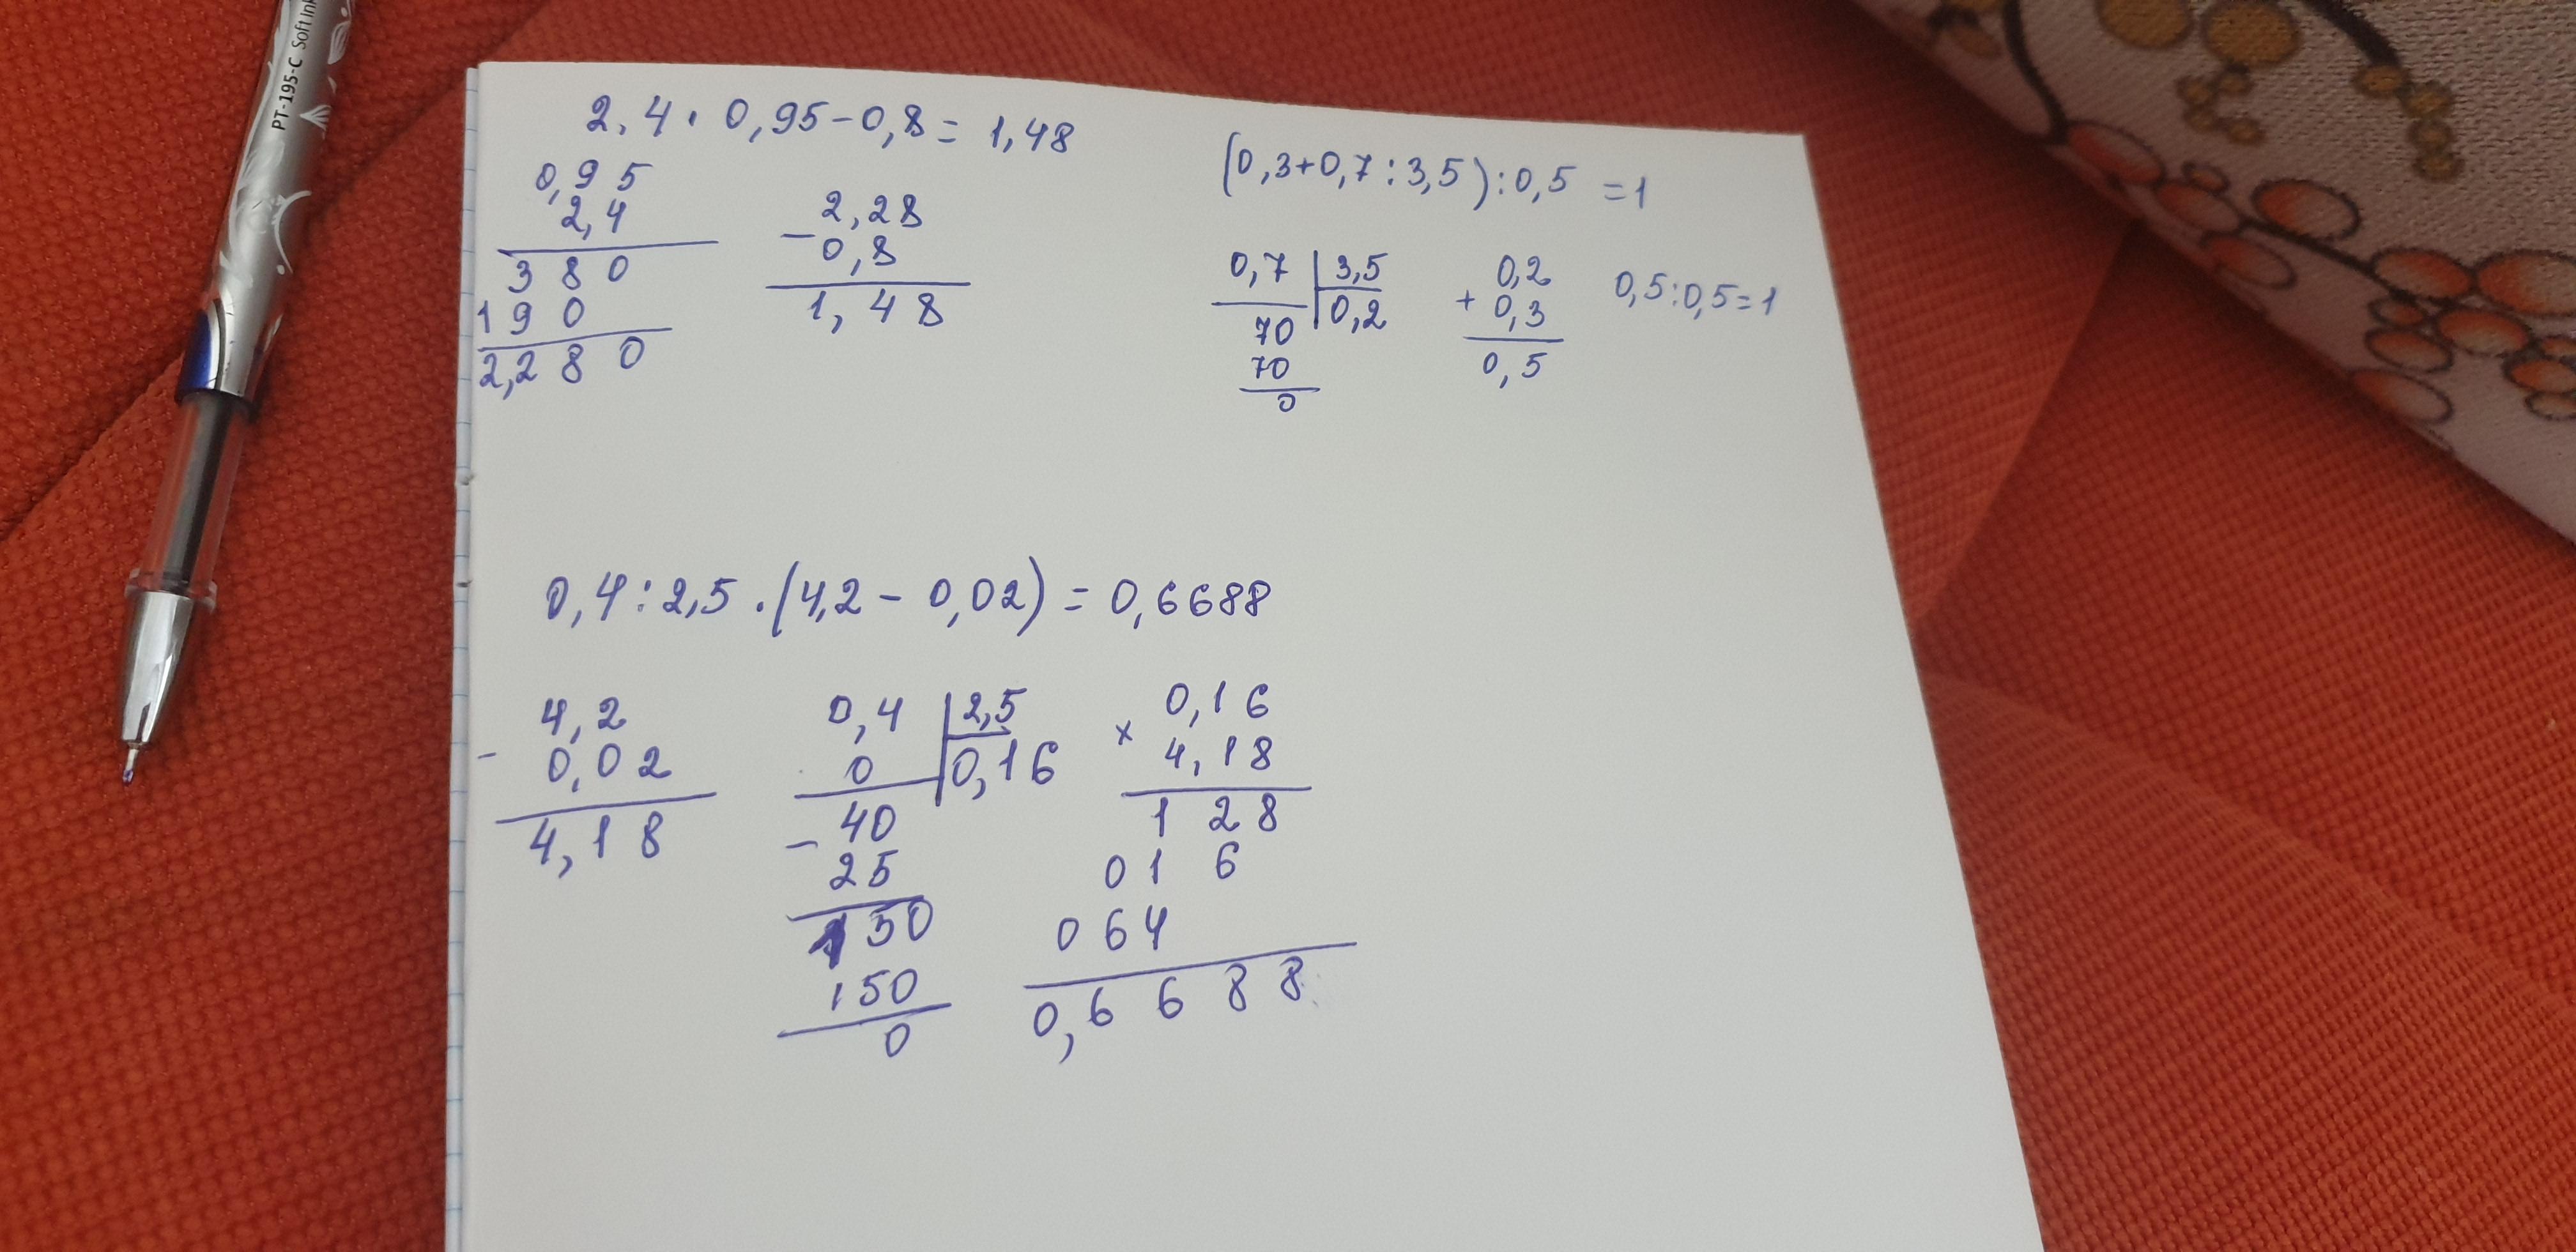 PT-195-C Soft Ink
2,4 · 0,95 - 0,8 = 1,48
0,95
2,4
380
190
2,280
- 2,28
0,8
1,48
(0,3+0,7:3,5):0,5 =1
0,7 | 3,5
70 | 0,2
70
0
0,2
+ 0,3
0,5
0,5:0,5=1
0,4:2,5 · (4,2 - 0,02) = 0,6688
4,2
- 0,02
4,18
0,4 | 2,5
0 | 0,16
- 40
25
150
150
0
0,16
× 4,18
128
016
064
0,6688